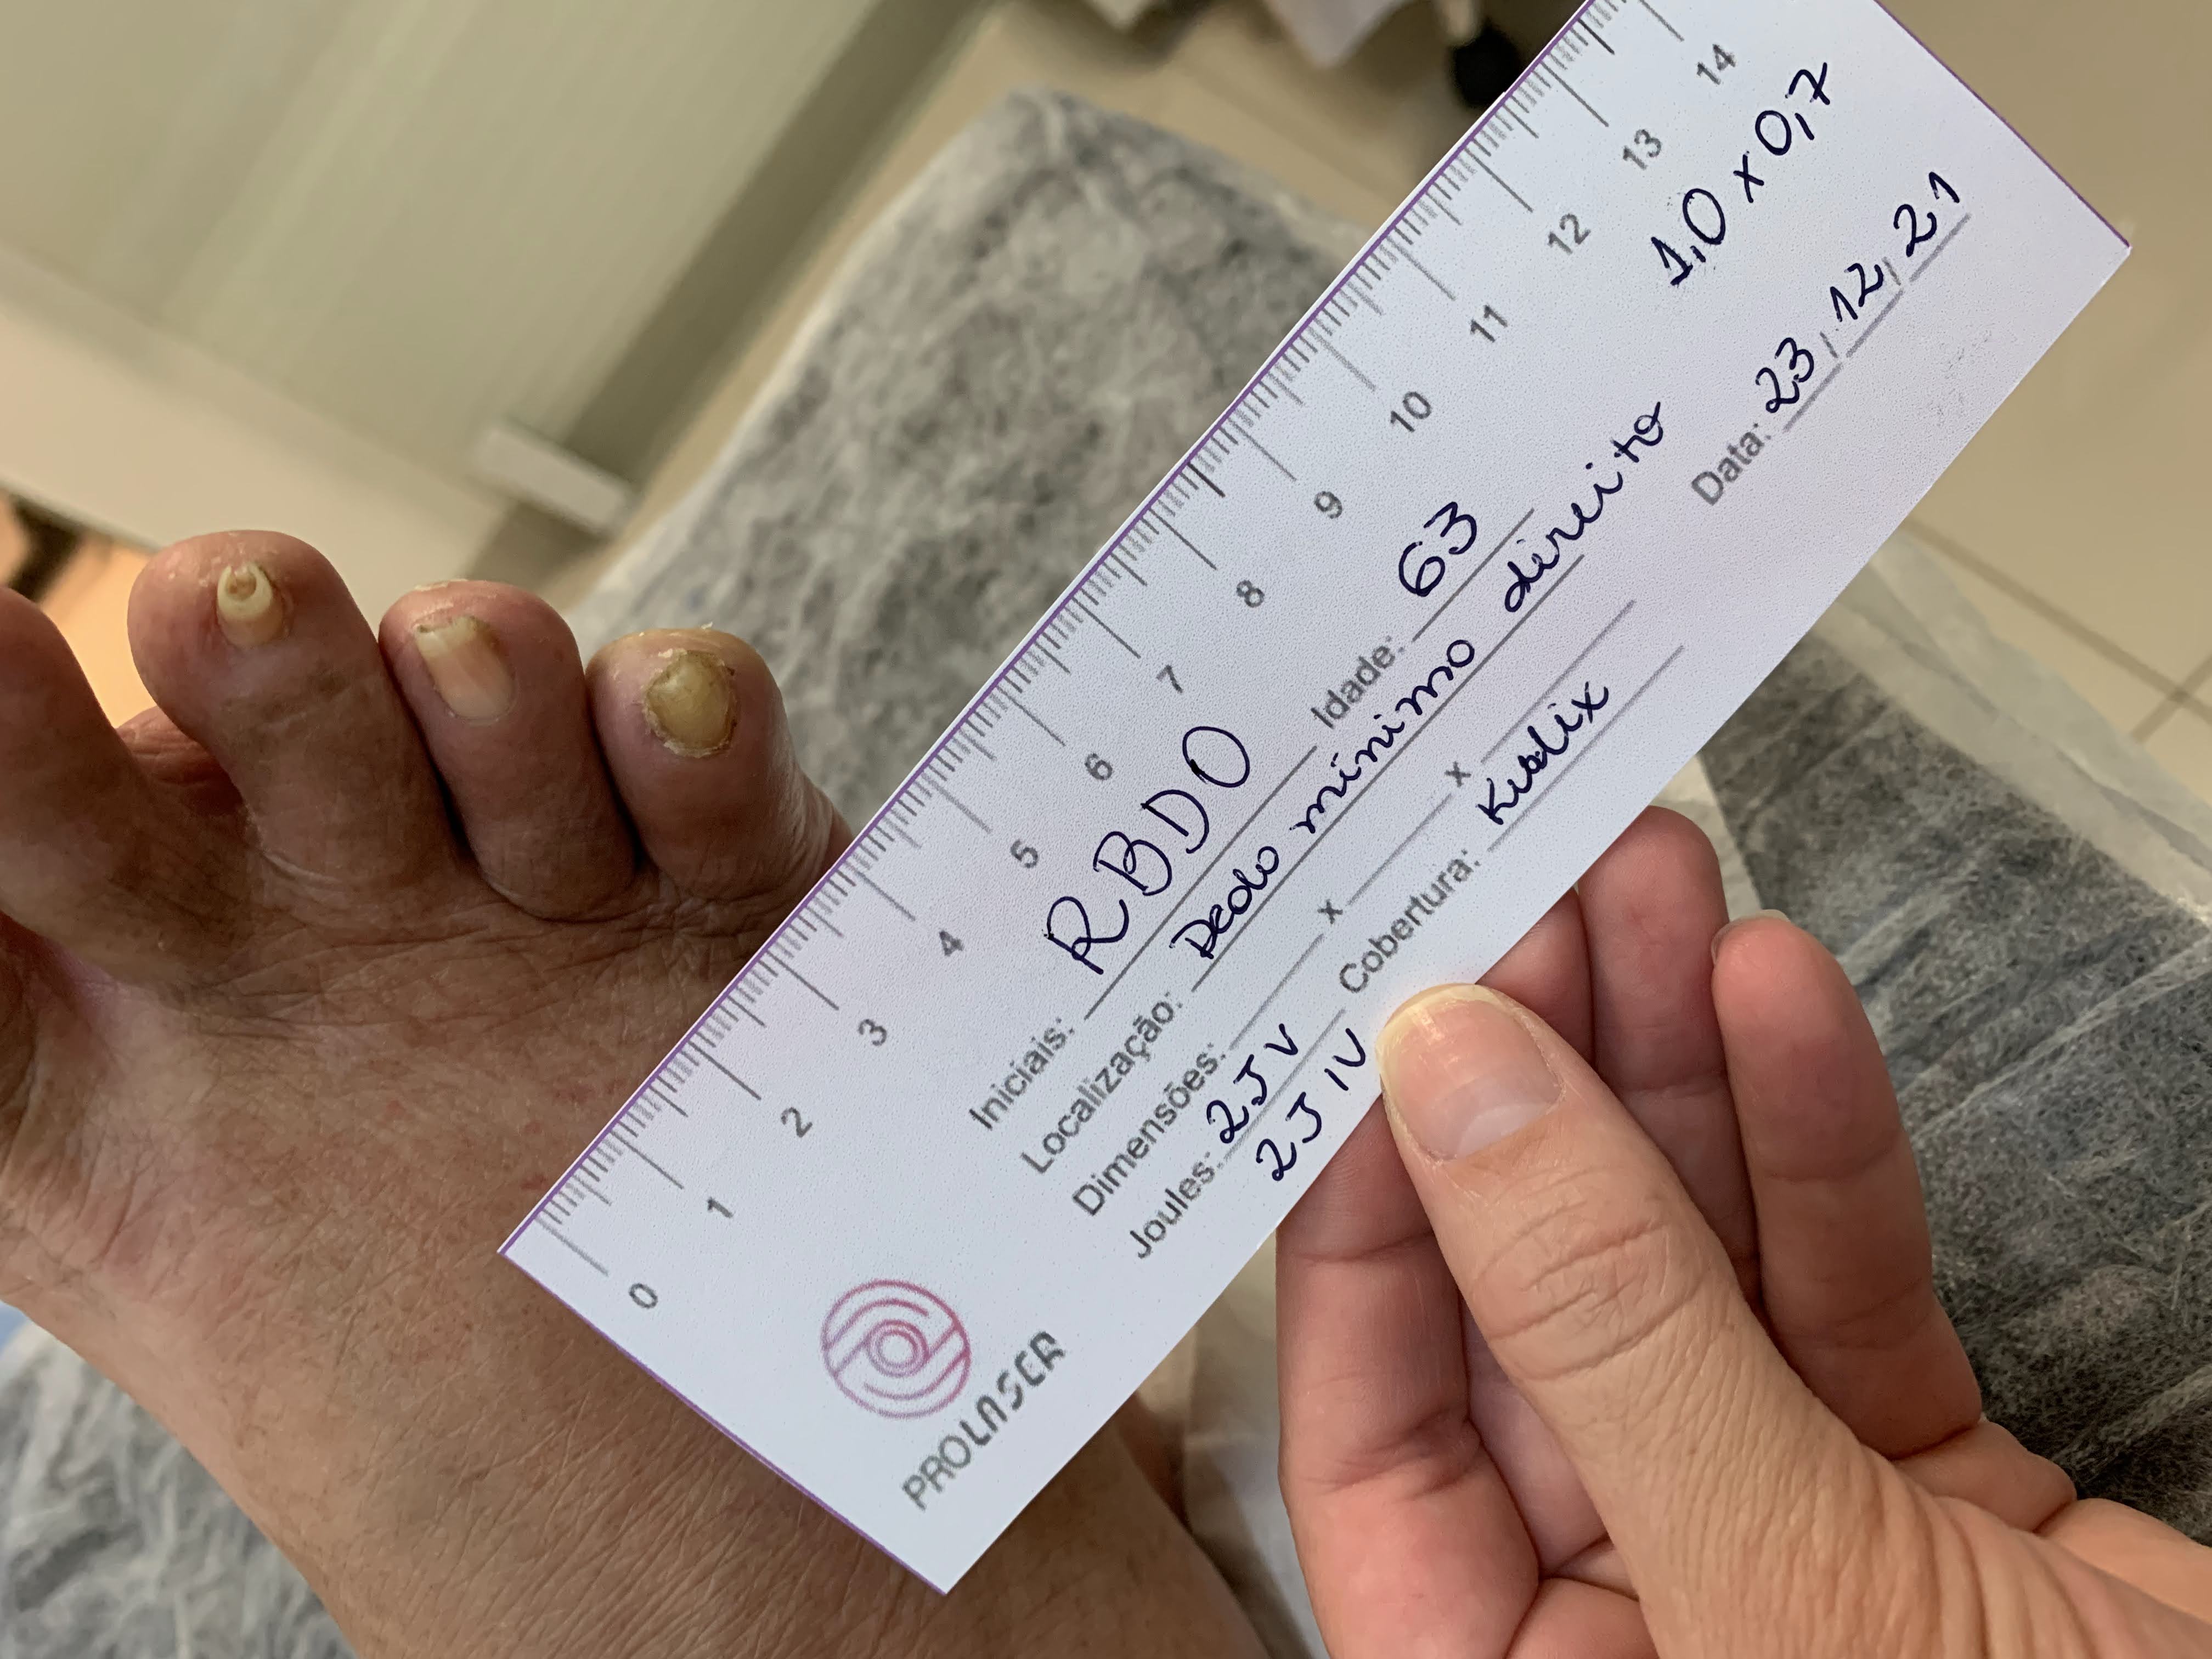 0 1 2 3 4 5 6 7 8 9 10 11 12 13 14
PROLASER
Iniciais: RBDO Idade: 63
Localização: Dedo mínimo direito
Dimensões: x x 1,0 x 0,7
Joules: 2J V
2J IV
Cobertura: Data: 23/12/21